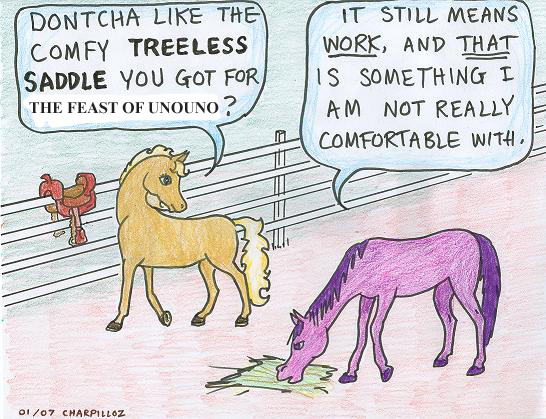 DONTCHA LIKE THE
COMFY TREELESS
SADDLE YOU GOT FOR
THE FEAST OF UNOUNO?
IT STILL MEANS
WORK, AND THAT
IS SOMETHING I
AM NOT REALLY
COMFORTABLE WITH.
01/07 CHARPILLOZ